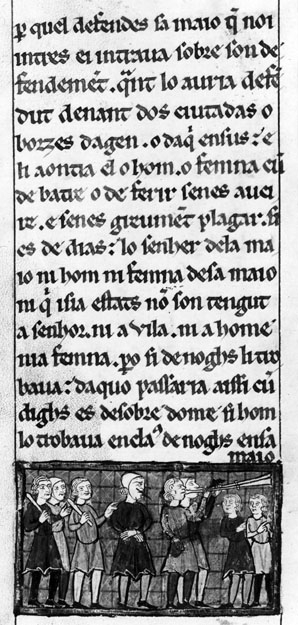 ꝑ quel defendes sa maio q̃ noi
intres ei intraua sobre son de
fendemẽt. q̃nt lo auria defẽ
dut denant dos ciutadas o
borzes dagen. o daq̃ ensus: e
li aontia el o hom. o femna cũ
de batre o de ferir senes auci
re. e senes greumẽt plagar. si
es de dias: lo senher de la ma
io ni hom ni femna de sa maio
ni q̃ isia estats nõ son tengut
a senhor. ni a uila. ni a home
ni a femna. ꝑo si de noghs li tro
baua: daquo passaria aissi cũ
dighs es desobre dome si hom
lo trobaua en cla⁹ de noghs en sa
maio